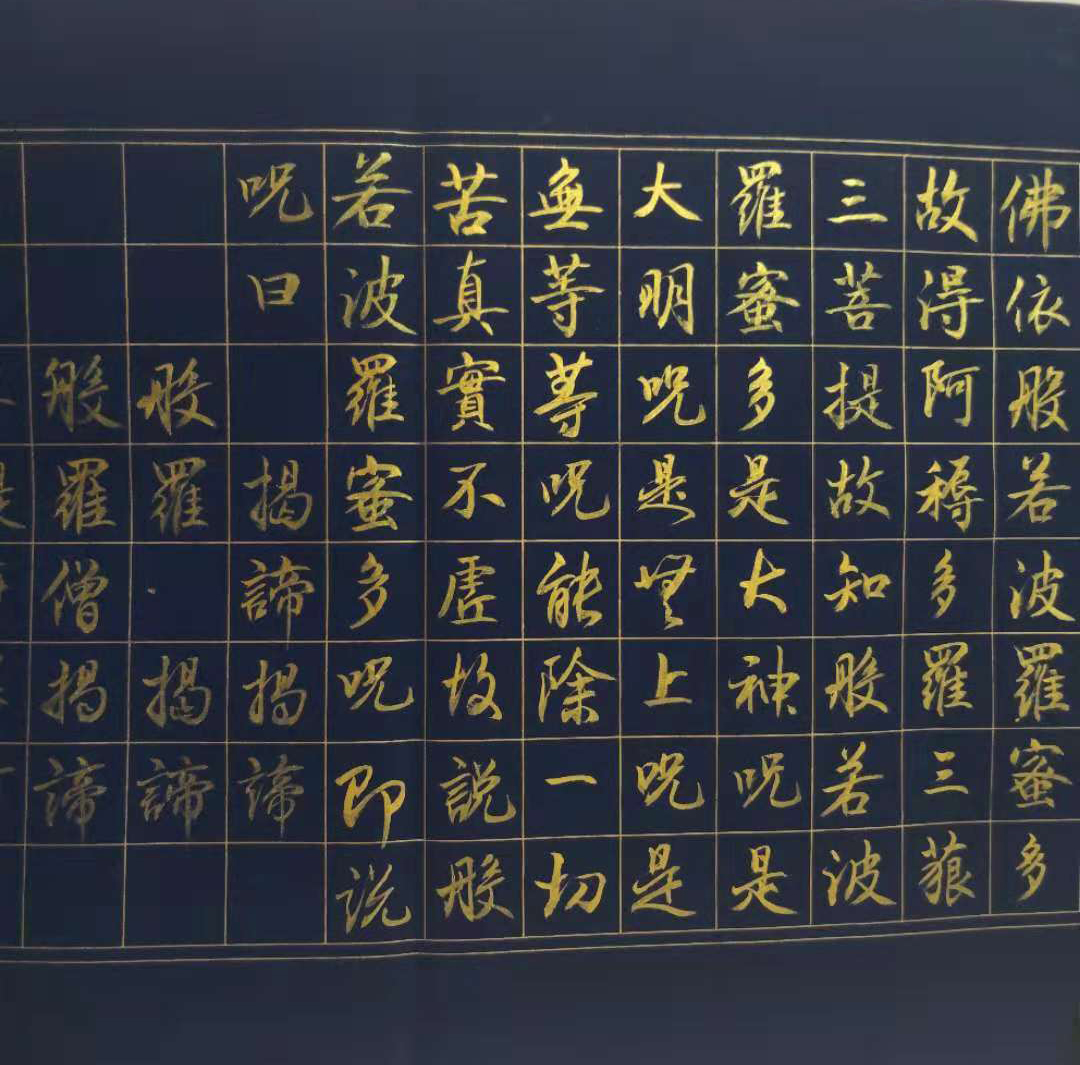 佛依般若波羅蜜多
故得阿耨多羅三藐
三菩提故知般若波
羅蜜多是大神呪是
大明呪是無上呪是
無等等呪能除一切
苦真實不虛故說般
若波羅蜜多呪即说
呪曰 揭諦揭諦
般羅 揭諦
般羅僧揭諦